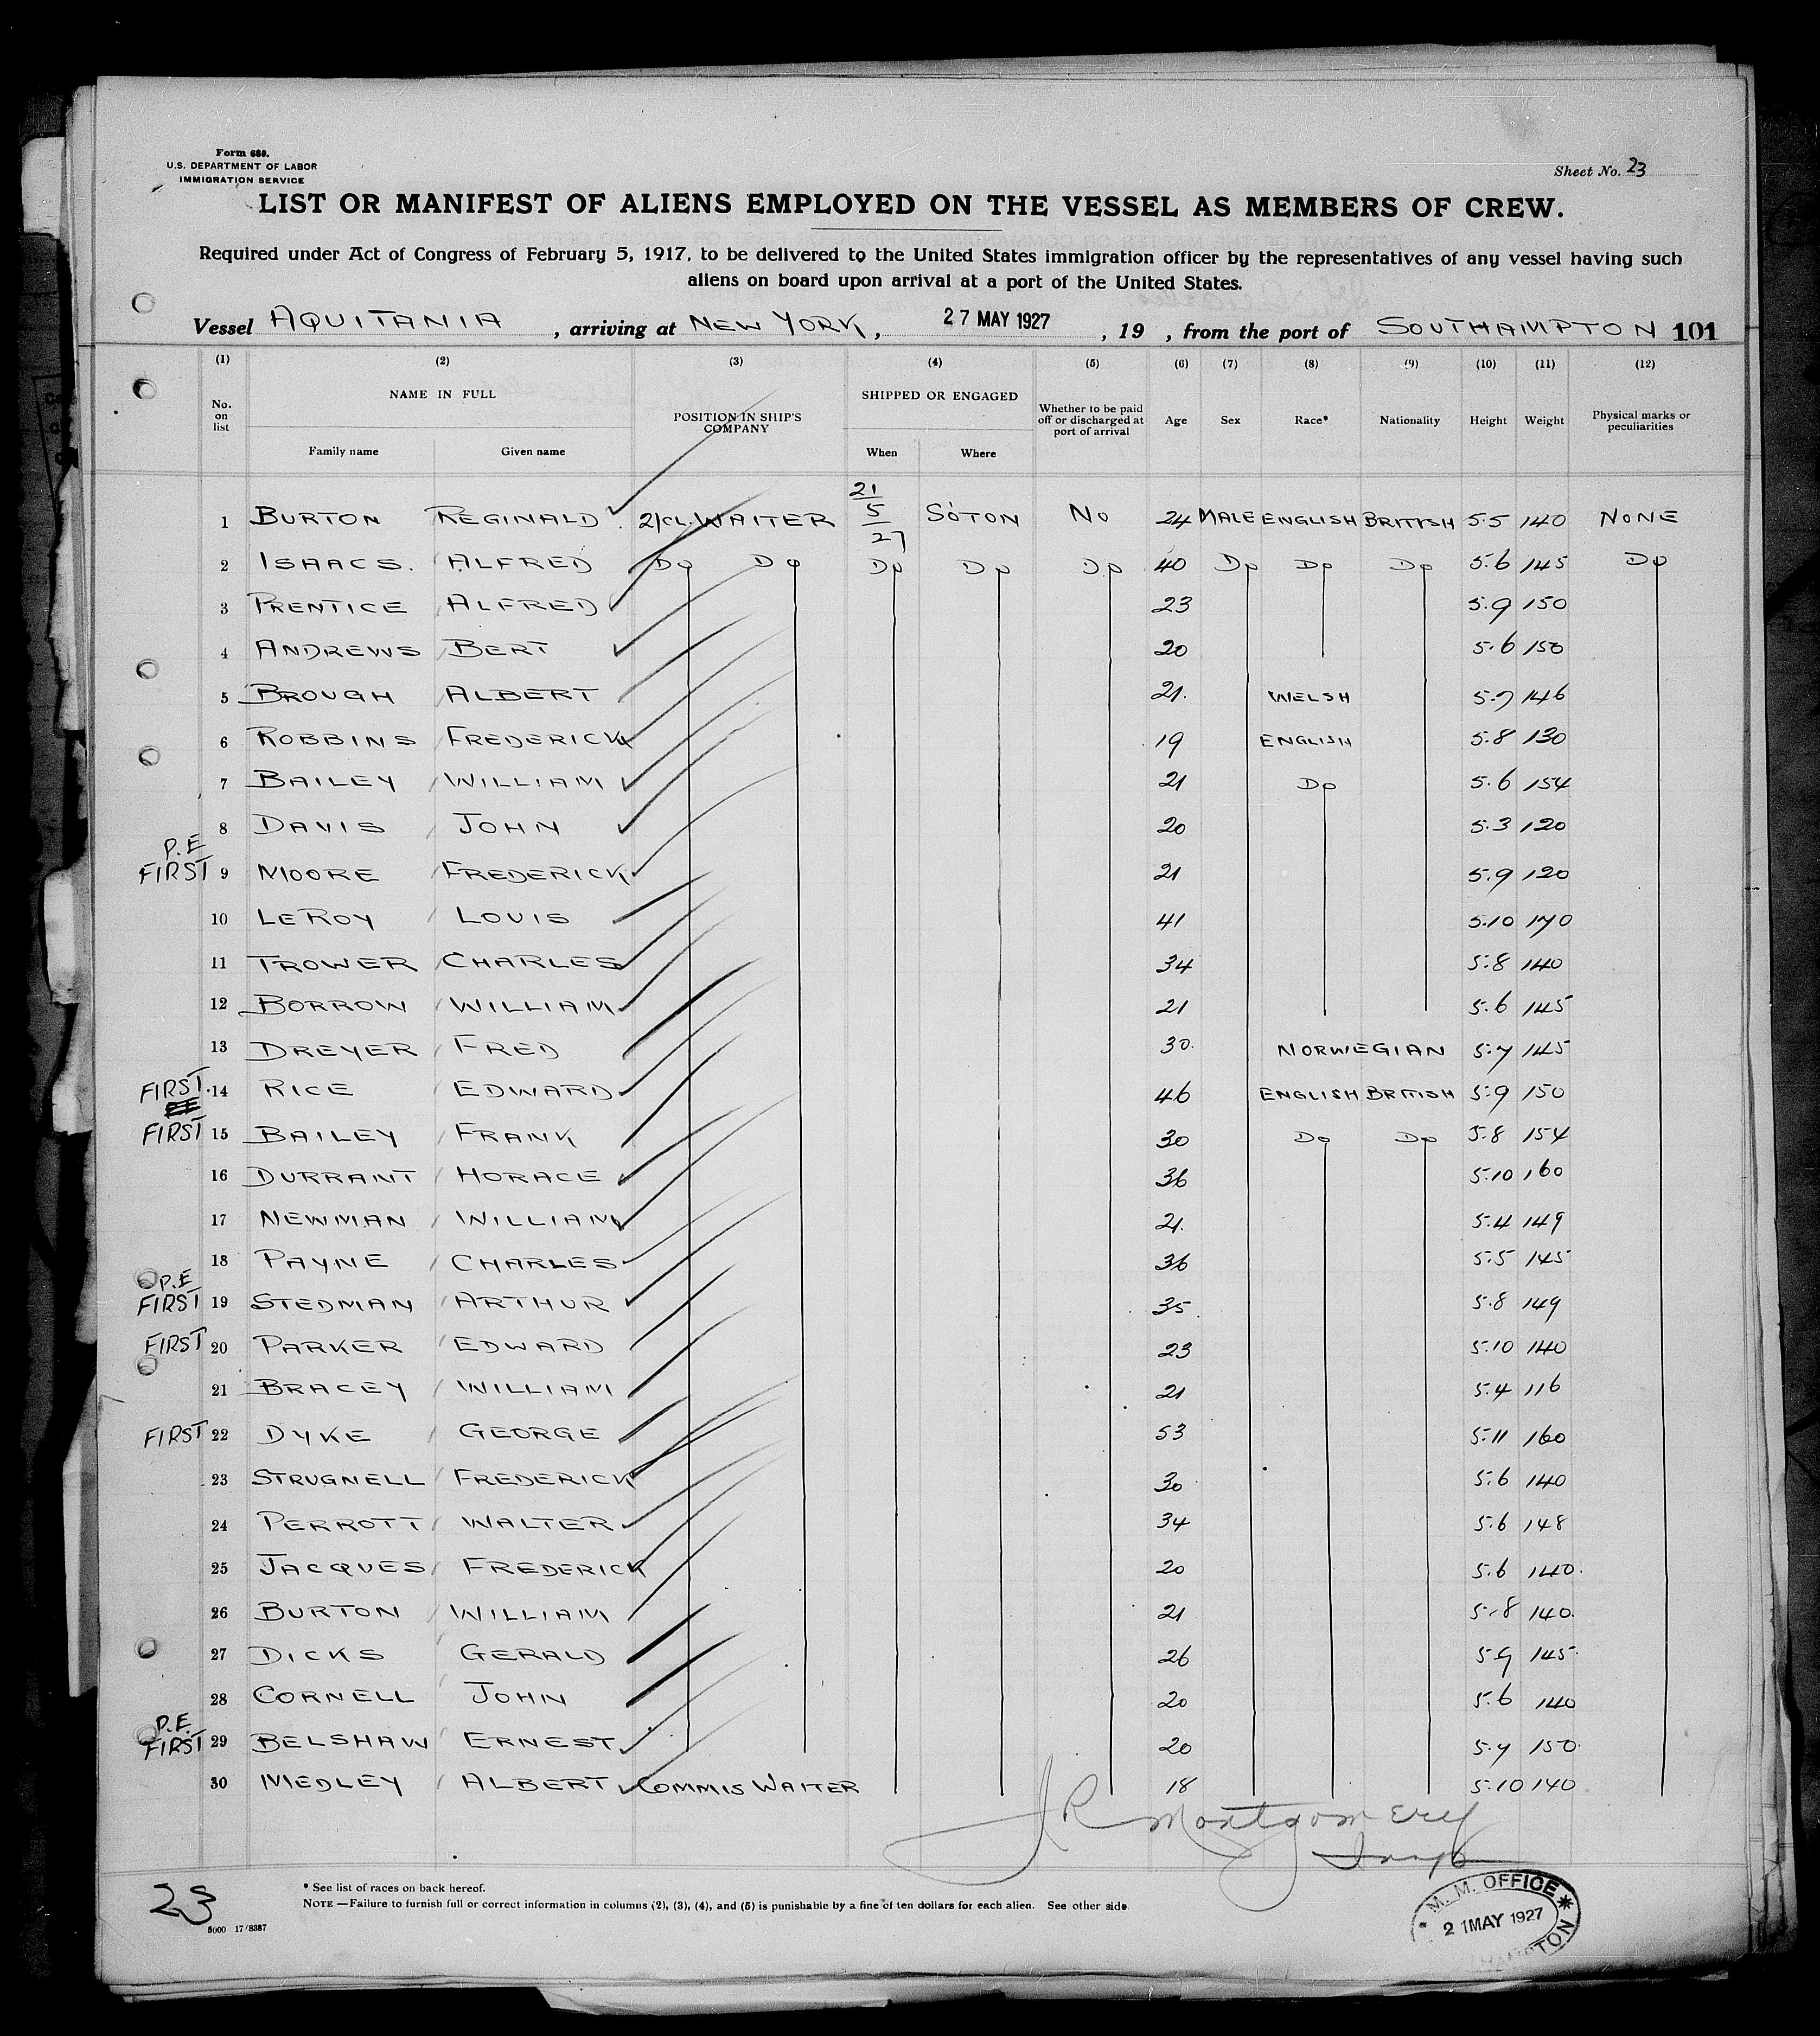 Form 680.
U.S. DEPARTMENT OF LABOR
IMMIGRATION SERVICE
Sheet No. 23
LIST OR MANIFEST OF ALIENS EMPLOYED ON THE VESSEL AS MEMBERS OF CREW.
Required under Act of Congress of February 5, 1917, to be delivered to the United States immigration officer by the representatives of any vessel having such
aliens on board upon arrival at a port of the United States.
Vessel AQUITANIA , arriving at NEW YORK , 27 MAY 1927 , 19 , from the port of SOUTHAMPTON 101
(1) (2) (3) (4) (5) (6) (7) (8) (9) (10) (11) (12)
No. on list NAME IN FULL Family name Given name POSITION IN SHIP'S COMPANY SHIPPED OR ENGAGED When Where Whether to be paid off or discharged at port of arrival Age Sex Race* Nationality Height Weight Physical marks or peculiarities
1 BURTON REGINALD 2/CL. WAITER 21/5/27 SOTON NO 24 MALE ENGLISH BRITISH 5.5 140 NONE
2 ISAACS. ALFRED DO DO DO DO DO 40 DO DO DO 5.6 145 DO
3 PRENTICE ALFRED 23 5.9 150
4 ANDREWS BERT 20 5.6 150
5 BROUGH ALBERT 21. WELSH 5.7 146
6 ROBBINS FREDERICK 19 ENGLISH 5.8 130
7 BAILEY WILLIAM 21 DO 5.6 154
8 DAVIS JOHN 20 5.3 120
P.E
FIRST 9 MOORE FREDERICK 21 5.9 120
10 LEROY LOUIS 41 5.10 170
11 TROWER CHARLES 34 5.8 140
12 BORROW WILLIAM 21 5.6 145
13 DREYER FRED 30. NORWEGIAN 5.7 145
FIRST 14 RICE EDWARD 46 ENGLISH BRITISH 5.9 150
FIRST 15 BAILEY FRANK 30 DO DO 5.8 154
16 DURRANT HORACE 36 5.10 160
17 NEWMAN WILLIAM 21. 5.4 149
18 PAYNE CHARLES 36 5.5 145
P.E
FIRST 19 STEDMAN ARTHUR 35 5.8 149
FIRST 20 PARKER EDWARD 23 5.10 140
21 BRACEY WILLIAM 21 5.4 116
FIRST 22 DYKE GEORGE 53 5.11 160
23 STRUGNELL FREDERICK 30 5.6 140
24 PERROTT WALTER 34 5.6 148
25 JACQUES FREDERICK 20 5.6 140.
26 BURTON WILLIAM 21 5.8 140.
27 DICKS GERALD 26 5.9 145.
28 CORNELL JOHN 20 5.6 140
P.E.
FIRST 29 BELSHAW ERNEST 20 5.7 150.
30 MEDLEY ALBERT COMMIS WAITER 18 5.10 140
J R Montgomery
* See list of races on back hereof.
NOTE—Failure to furnish full or correct information in columns (2), (3), (4), and (5) is punishable by a fine of ten dollars for each alien. See other side.
23
5000 17/8387
M. M. OFFICE
21 MAY 1927